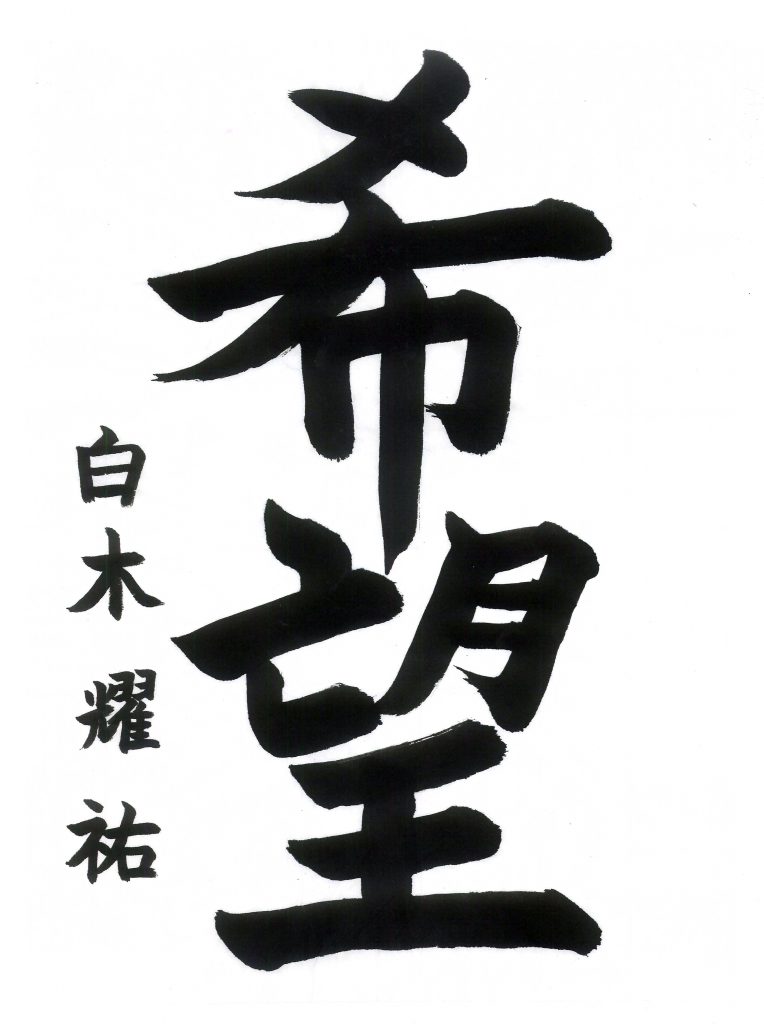 希望
白木耀祐